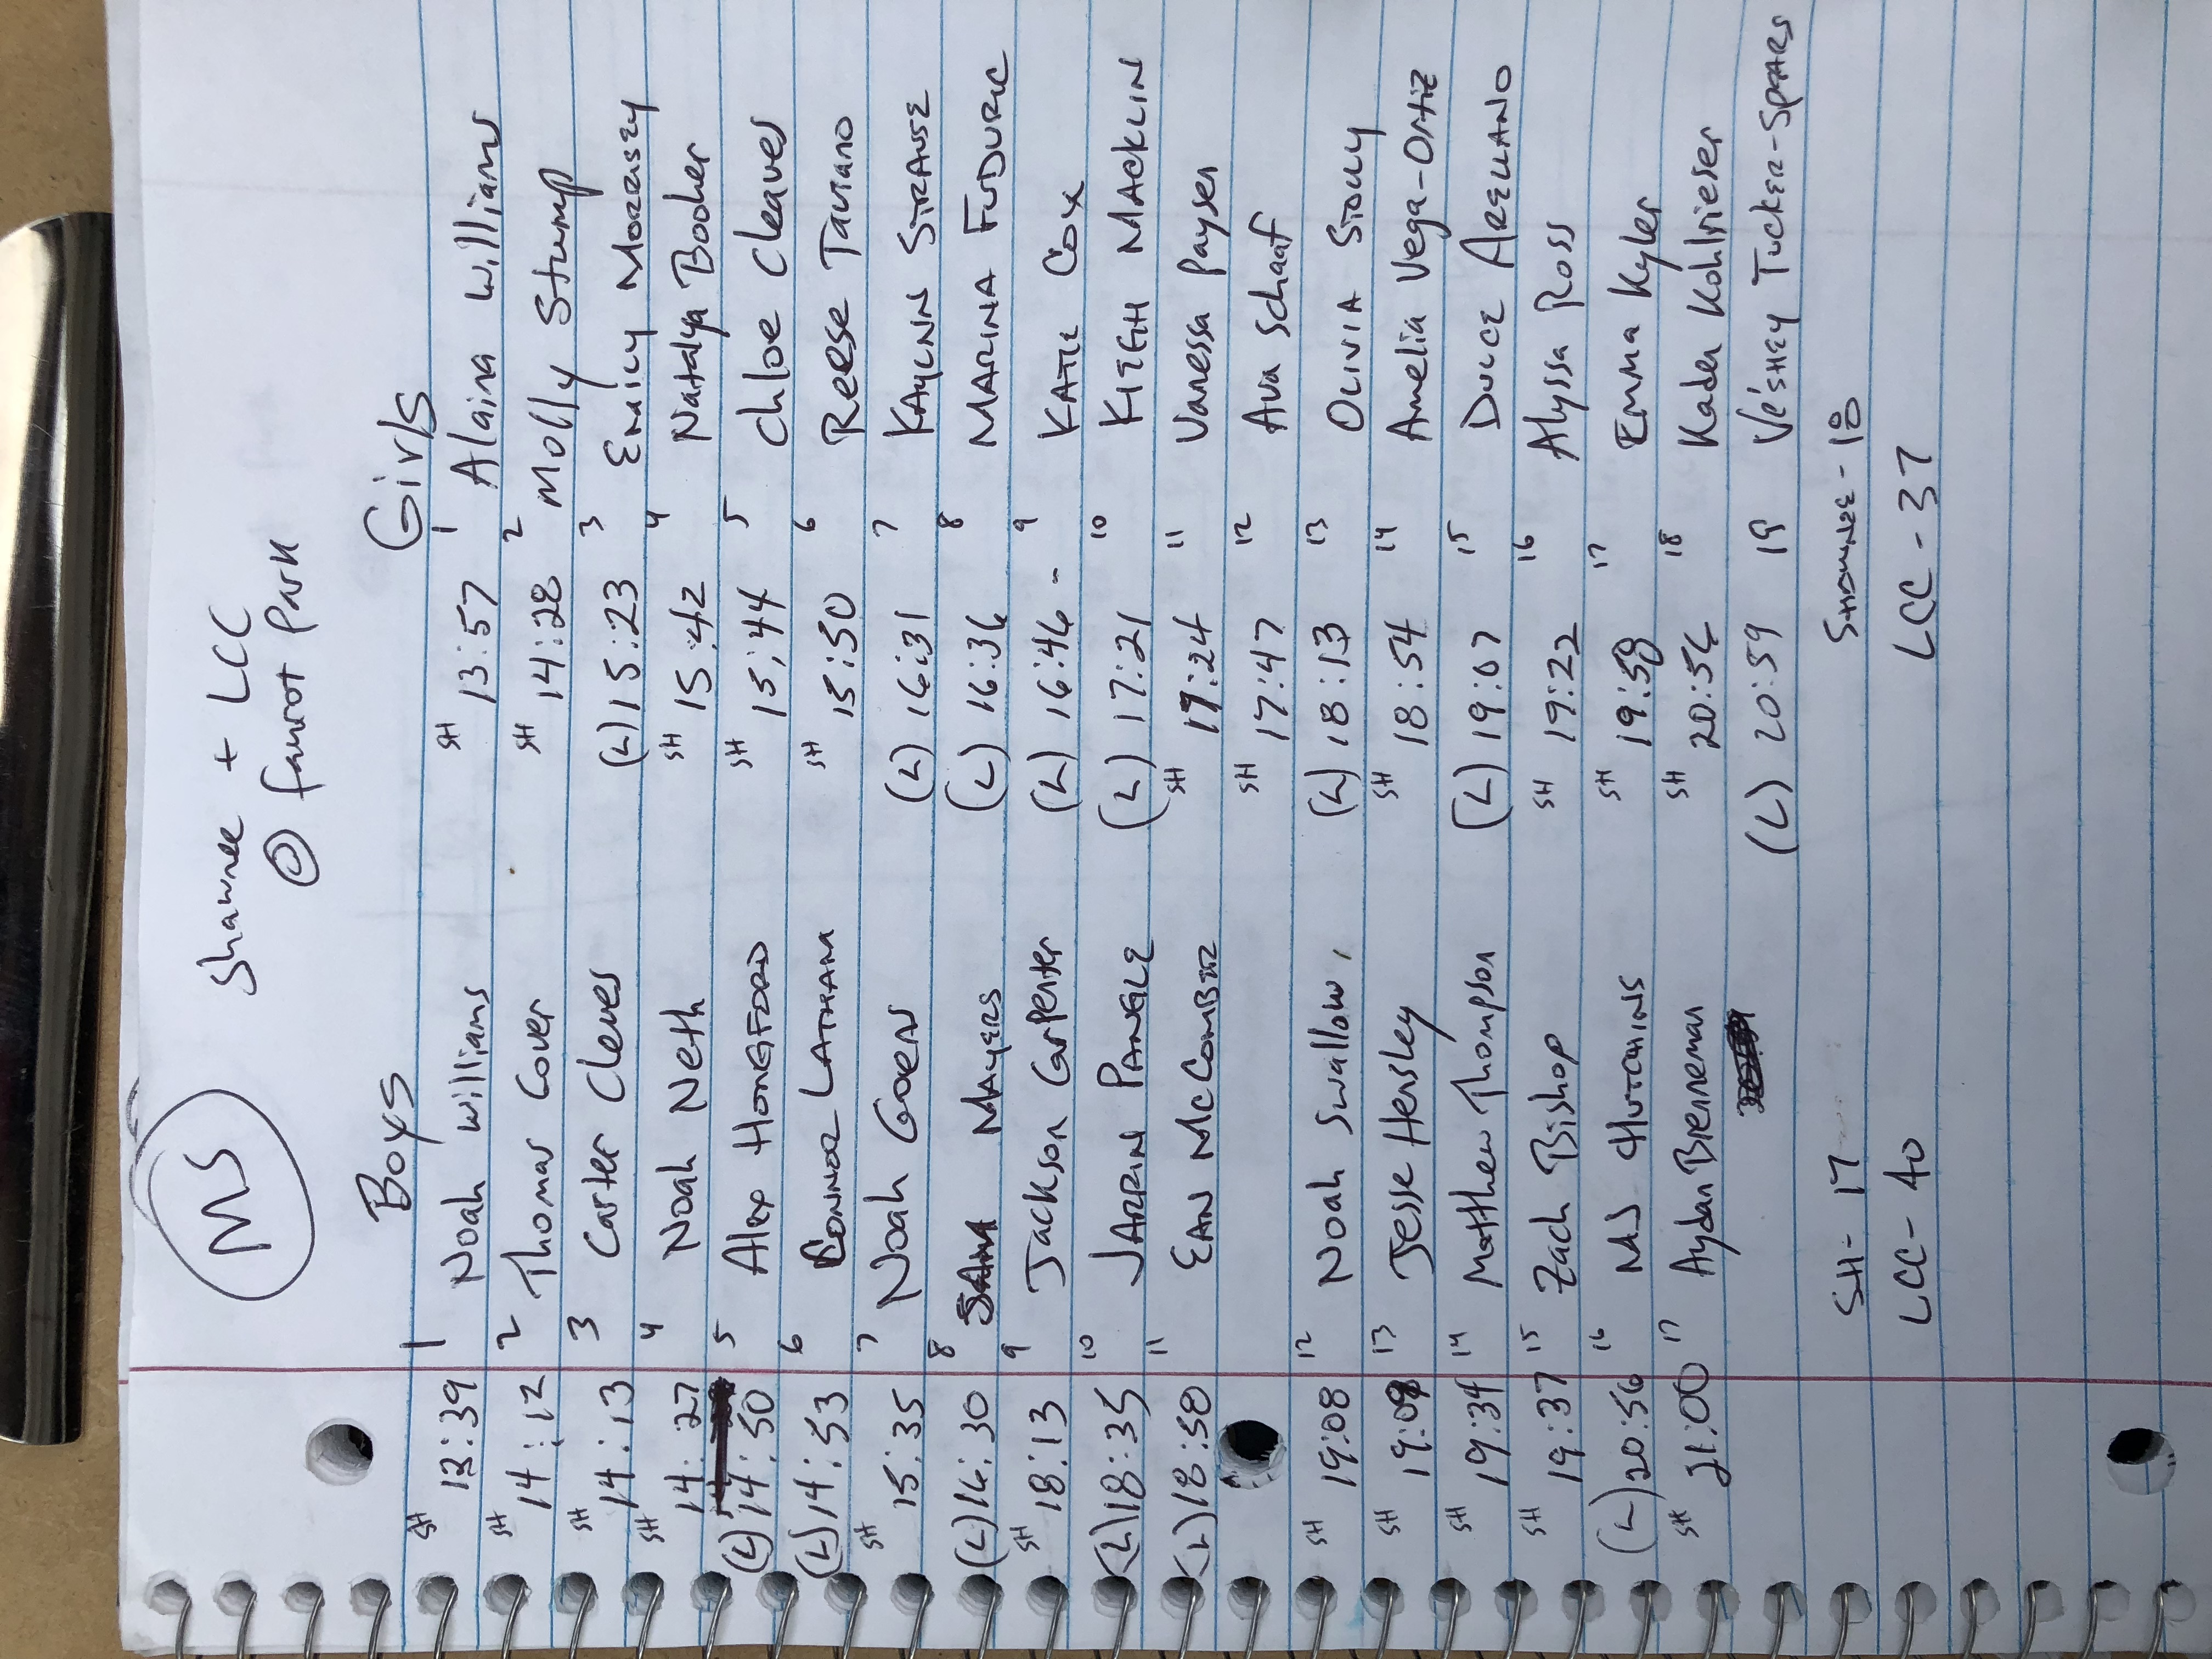 MS
Shawnee + LCC
@ Faurot Park
Boys
SH 13:39 1 Noah Williams
SH 14:12 2 Thomas Cover
SH 14:13 3 Carter Cleves
SH 14:27 4 Noah Neth
(L) 14:50 5 Alex Hongford
(L) 14:53 6 Connor Latham
SH 15:35 7 Noah Goen
(L) 16:30 8 Sam Mayers
SH 18:13 9 Jackson Carpenter
(L) 18:35 10 Jarrin Pangle
(L) 18:58 11 Ean McCombie
SH 19:08 12 Noah Swallow
SH 19:09 13 Jesse Hensley
SH 19:34 14 Matthew Thompson
SH 19:37 15 Zach Bishop
(L) 20:56 16 Hutchins
SH 21:00 17 Aydan Brenneman
SH - 17
LCC - 40
Girls
SH 13:57 1 Alaina Williams
SH 14:28 2 Molly Stump
(L) 15:23 3 Emily Morrisey
SH 15:42 4 Natalya Booher
SH 15:44 5 Chloe Cleaves
SH 15:50 6 Reese Taviano
(L) 16:31 7 Kaylnn Strause
(L) 16:36 8 Marina Fuduric
(L) 16:46 - 9 Katie Cox
(L) 17:21 10 Kiegh Macklin
SH 17:24 11 Vanessa Payser
SH 17:47 12 Ava Schaaf
(L) 18:13 13 Olivia Stolly
SH 18:54 14 Amelia Vega-Ortiz
(L) 19:07 15 Dulce Arellano
SH 19:22 16 Alyssa Ross
SH 19:58 17 Emma Kyler
SH 20:56 18 Kaden Kohlrieser
(L) 20:59 19 Ve'shey Tucker-Spears
Shawnee - 18
LCC - 37